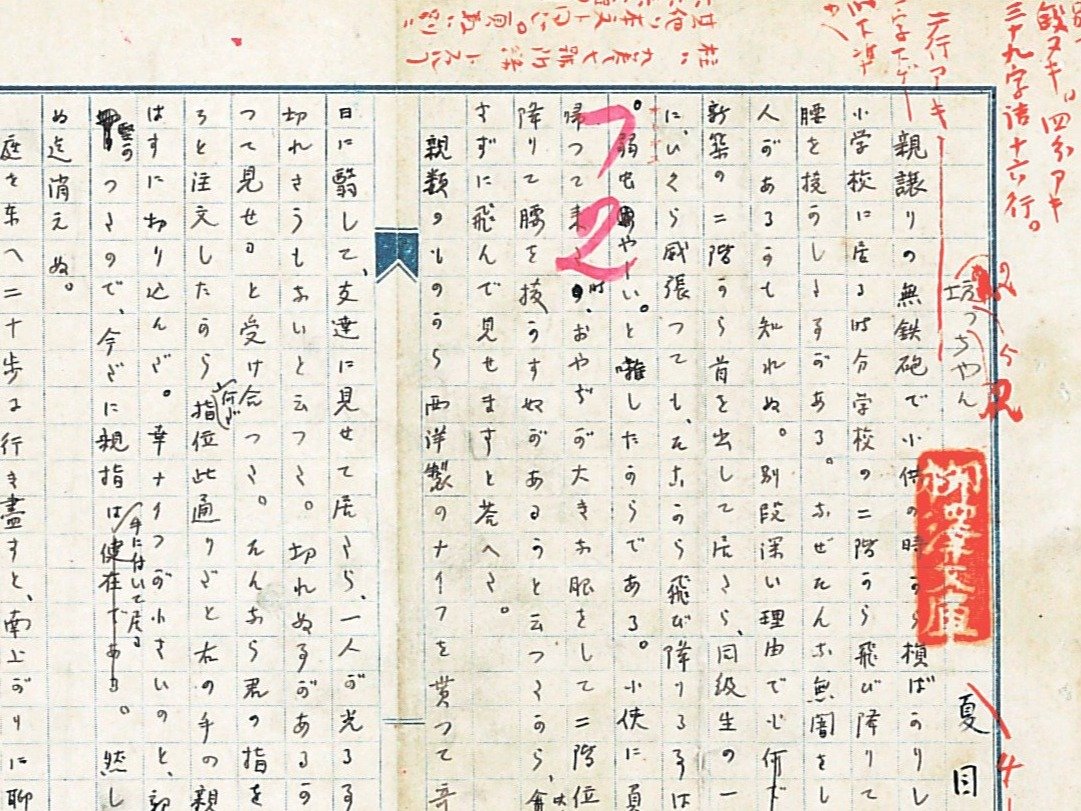 四分アキ
三十九字詰十六行。
一行アキ
坊っちやん
夏目
柳澤文庫
親譲りの無鉄砲で小供の時から損ばかりし
小学校に居る時分学校の二階から飛び降りて
腰を抜かした事がある。なぜそんな無闇をし
人があるかも知れぬ。別段深い理由でも何で
新築の二階から首を出して居たら、同級生の一
に、いくら威張つても、そこから飛び降りる事は
。弱虫やーい。と囃したからである。小使に負
帰つて来た時、おやぢが大きな眼をして二階位
降りて腰を抜かす奴があるかと云つたから、
さずに飛んで見せますと答へた。
72
親類のものから西洋製のナイフを貰つて奇
日に翳して、友達に見せて居たら、一人が光る事
切れさうもないと云つた。切れぬ事があるか
つて見せると受け合つた。そんなら君の指を
ろと注文したから何だ指位此通りだと右の手の親
はすに切り込んだ。幸ナイフが小さいのと、
堅かつたので、今だに親指は手に付いて居る。然し
ぬ迄消えぬ。
庭を東へ二十歩に行き盡すと、南上がりに聊